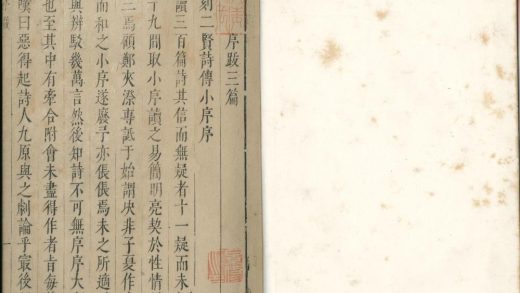 序跋三篇
刻二賢詩傳小序序
讀三百篇詩其信而無疑者十一疑而未
十九間取小序讀之易簡明亮契於性情
二焉顧鄭夾漈專詆于始謂決非子夏作
而和之小序遂廢予亦倀倀焉未之所適
與辨駁幾萬言然後知詩不可無序序大
也至其中有牽合附會未盡得作者肯每
嘆曰惡得起詩人九原與之劇論乎㝡後